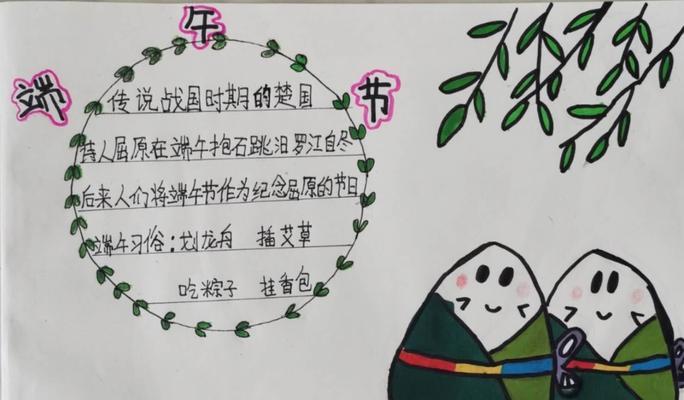 端午节
传说战国时期的楚国
诗人屈原在端午抱石跳汨罗江自尽
后来人们将端午节作为纪念屈原的节日
端午习俗：划龙舟 插艾草
吃粽子 挂香包